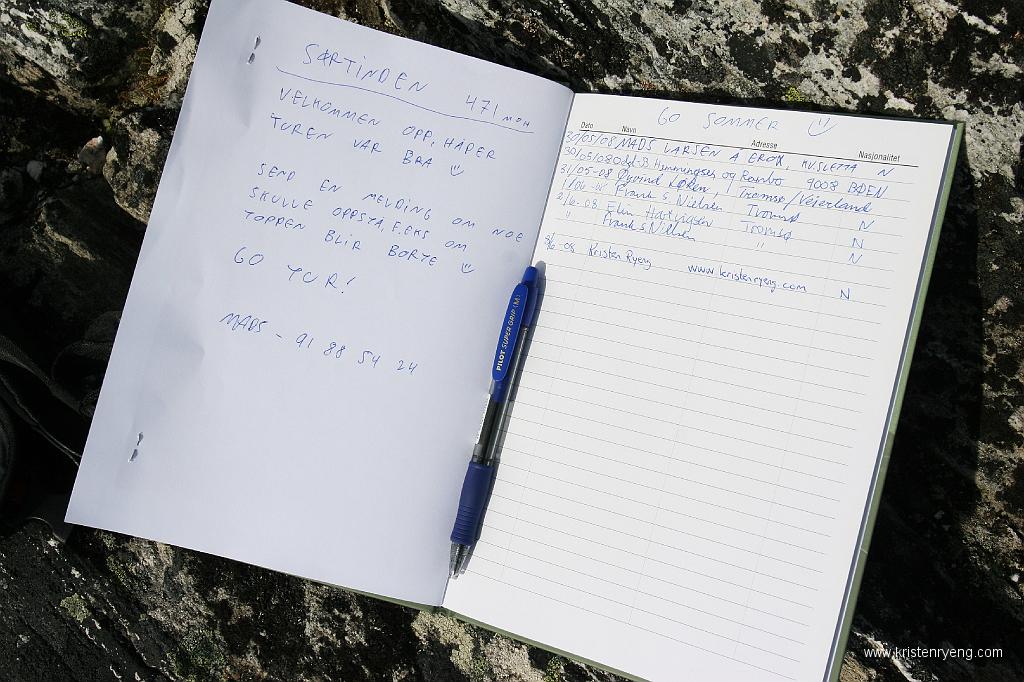 SØRTINDEN 471 MOH
VELKOMMEN OPP, HÅPER
TUREN VAR BRA
SEND EN MELDING OM NOE
SKULLE OPPSTÅ, F.EKS OM
TOPPEN BLIR BORTE
GO TUR!
MADS - 91 88 54 24
PILOT SUPER GRIP (M)
GO SOMMER
Dato Navn Adresse Nasjonalitet
30/05/08 MADS LARSEN N
30/05/08 Odd-B. Henningsen og Rambo 9008 BDEN
31/05-08 Øyvind Løken, Tromsø/Veierland
1/06 Frank S. Nielsen Tromsø N
2/6-08 Elin Hartvigsen Tromsø N
" Frank S. Nielsen " N
8/6-08 Kristen Ryeng www.kristenryeng.com N
www.kristenryeng.com